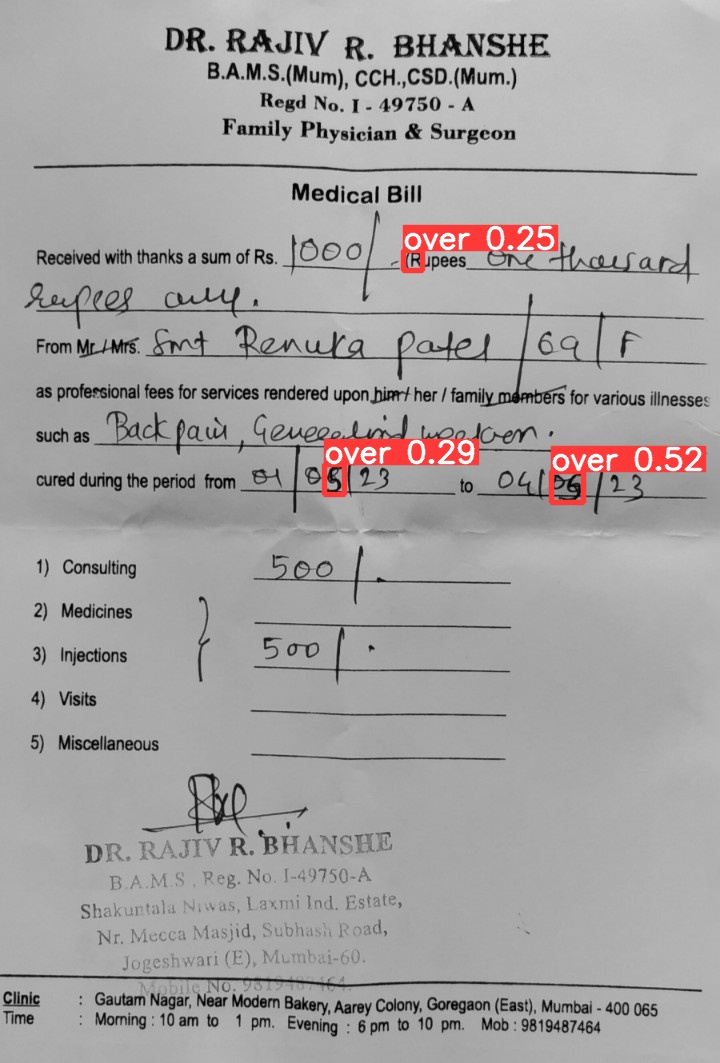 DR. RAJIV R. BHANSHE
B.A.M.S.(Mum), CCH.,CSD.(Mum.)
Regd No. I - 49750 - A
Family Physician & Surgeon
Medical Bill
over 0.25
Received with thanks a sum of Rs. 1000/- (Rupees one thousand
rupees only.
From Mr./Mrs. Smt Renuka Patel / 69 / F
as professional fees for services rendered upon him / her / family members for various illnesses
such as Back pain,
over 0.29 over 0.52
cured during the period from 01/05/23 to 04/ /23
1) Consulting 500/-
2) Medicines
3) Injections 500/-
4) Visits
5) Miscellaneous
DR. RAJIV R. BHANSHE
B.A.M.S., Reg. No. I-49750-A
Shakuntala Niwas, Laxmi Ind. Estate,
Nr. Mecca Masjid, Subhash Road,
Jogeshwari (E), Mumbai-60.
Mobile No. 9819487464.
Clinic : Gautam Nagar, Near Modern Bakery, Aarey Colony, Goregaon (East), Mumbai - 400 065
Time : Morning : 10 am to 1 pm. Evening : 6 pm to 10 pm. Mob : 9819487464